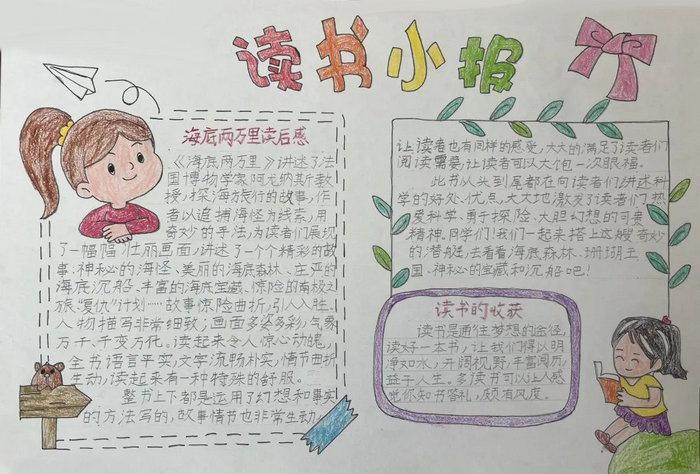 读书小报
海底两万里读后感
《海底两万里》讲述了法
国博物学家阿龙纳斯教
授,探海旅行的故事,作
者以追捕海怪为线索,用
奇妙的手法,为读者们展现
了一幅幅壮丽画面,讲述了一个个精彩的故
事:神秘的海怪、美丽的海底森林、庄严的
海底沉船、丰富的海底宝藏、惊险的南极之
旅、“复仇”计划……故事惊险曲折,引人入胜,
人物描写非常细致;画面多姿多彩,气象
万千、千变万化。读起来令人惊心动魄,
全书语言平实,文字流畅朴实,情节曲折
生动,读起来有一种特殊的舒服。
整书上下都是运用了幻想和事实
的方法写的,故事情节也非常生动,
让读者也有同样的感受,大大的满足了读者们
阅读需要,让读者可以大饱一次眼福。
此书从头到尾都在向读者们讲述科
学的好处、优点,大大地激发了读者们热
爱科学、勇于探险、大胆幻想的可贵
精神。同学们!我们一起来搭上这艘奇妙
的潜艇,去看看海底森林、珊瑚王
国、神秘的宝藏和沉船吧!
读书的收获
读书是通往梦想的途径,
读好一本书,让我们得以明
净如水,开阔视野,丰富阅历,
益于人生。多读书可以让人感
觉你知书答礼,颇有风度。